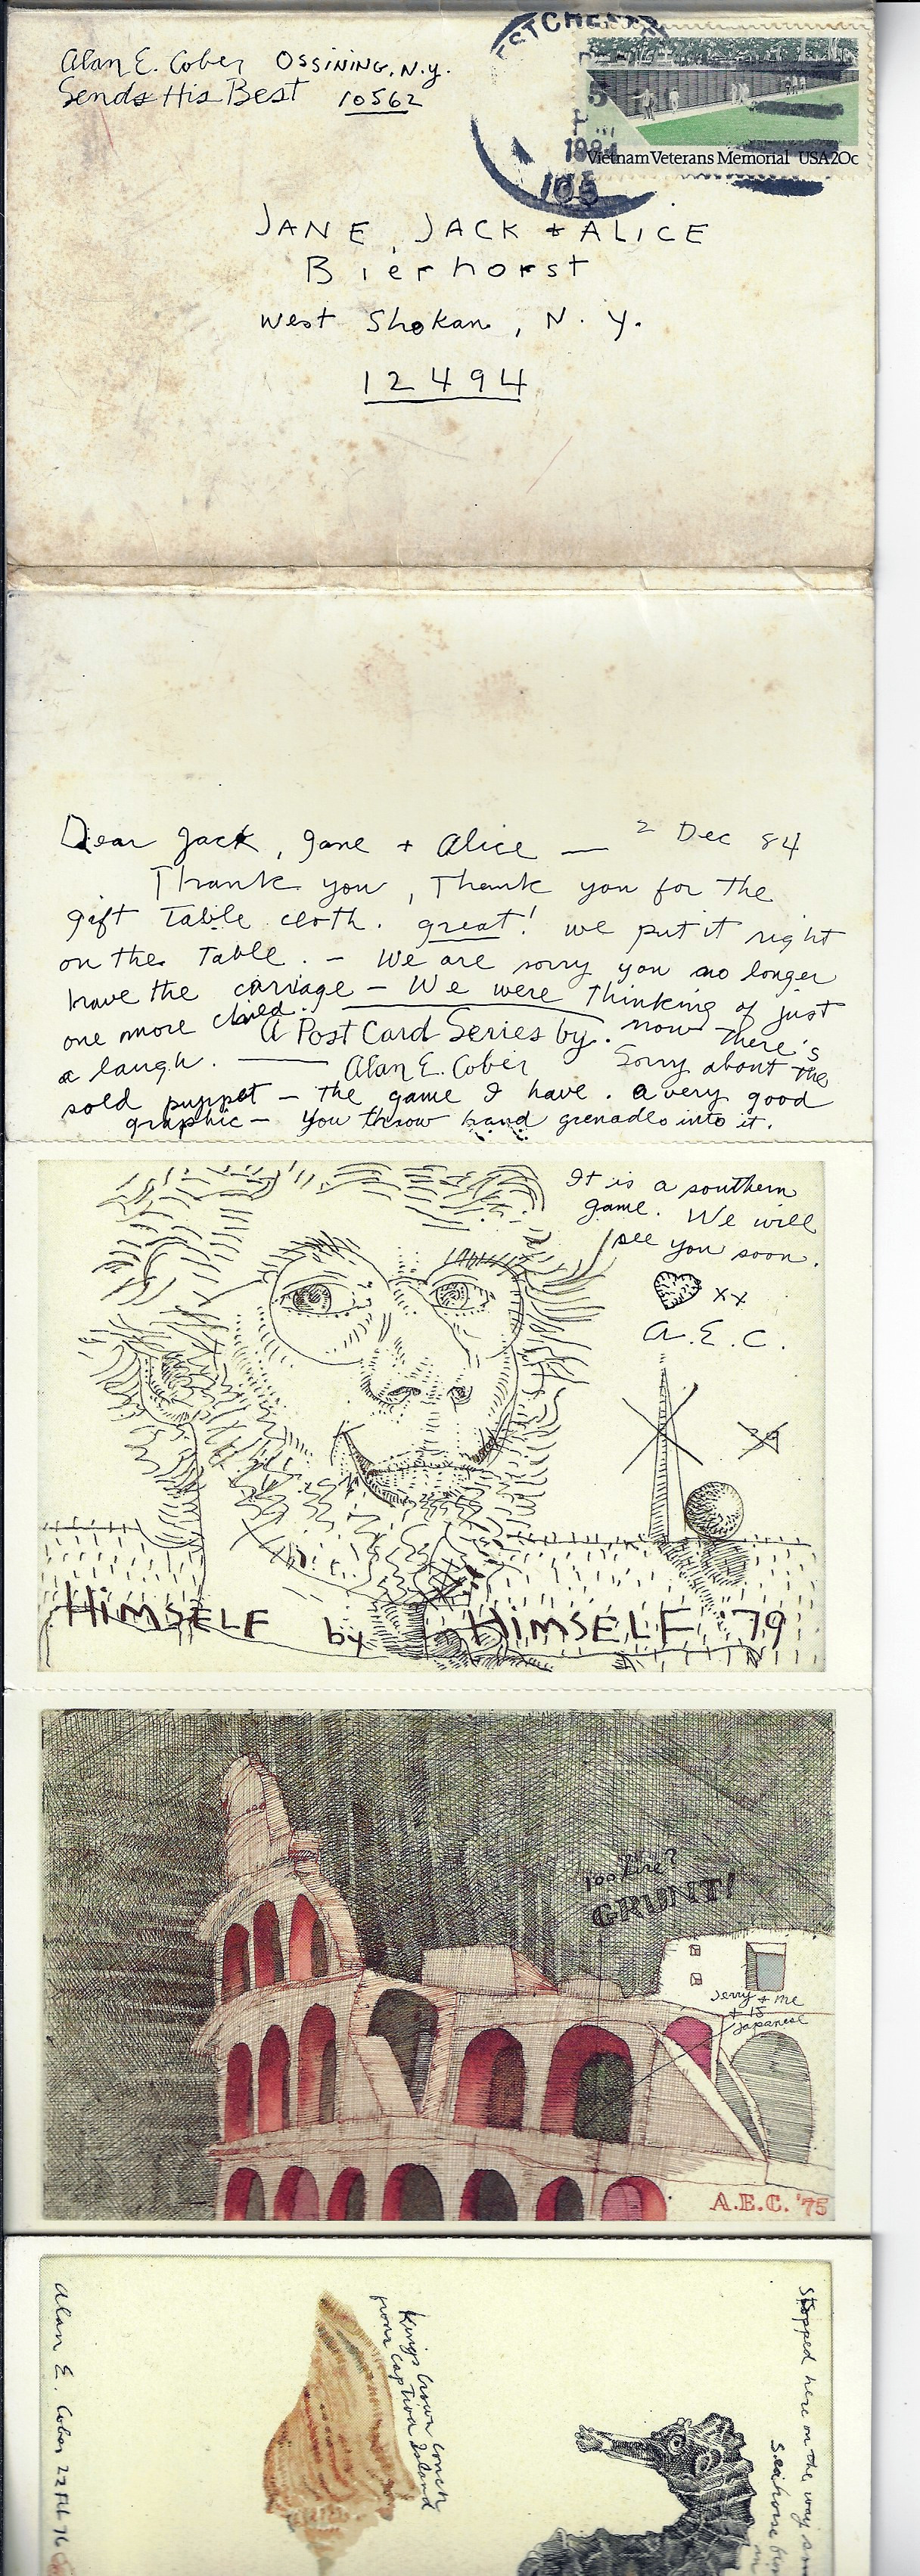 Alan E. Cober Ossining, N.y.
Sends His Best 10562
STCHES
5
1984
105
Vietnam Veterans Memorial USA20c
JANE, JACK + ALICE
Bierhorst
West Shokan, N.Y.
12494
Dear Jack, Jane + Alice — 2 Dec 84
Thank you, Thank you for the
gift Table cloth. great! we put it right
on the Table. – We are sorry you no longer
have the carriage – We were Thinking of just
one more child. now there's
A Post Card Series by
a laugh. — Sorry about the
Alan E. Cober
sold puppet – the game I have. a very good
graphic – You throw hand grenades into it.
It is a southern
game. We will
see you soon.
xx
A.E.C.
HIMSELF by HIMSELF '79
100 Lire?
GRUNT!
Jerry + me
+ 15
Japanese
A.E.C. '75
Alan E. Cober 22 Feb 76
Kings Crown conch
from Captiva Island
Stopped here on the way
Seahorse